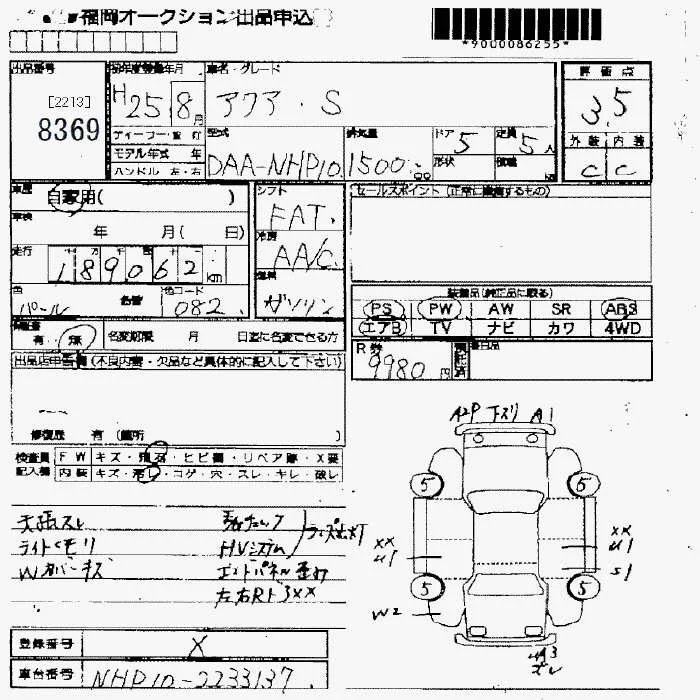 福岡オークション出品申込
*9000086255*
出品番号
[2213]
8369
初年度登録年月
H25.8月
車名・グレード
アクア・S
評価点
3.5
ディーラー・並行
モデル年式 年
ハンドル 左・右
型式
DAA-NHP10
排気量
1500cc
ドア
5
形状
定員
5人
積載
外装 内装
C C
車歴
自家用( )
車検
年 月( 日)
走行
189062km
色
パール
色替
色コード
082
シフト
FAT.
冷房
AA/C
燃料
ガソリン
セールスポイント(正常に機能するもの)
装備品(純正品に限る)
PS PW AW SR ABS
エアB TV ナビ カワ 4WD
R券
9980円
有・無
名変期限 月 日迄に名変できる方
出品店申告欄(不良内容・欠品など具体的に記入して下さい)
修復歴 有(箇所 )
検査員 FW キズ・飛石・ヒビ割・リペア跡・X要
記入欄 内装 キズ・汚レ・コゲ・穴・スレ・キレ・破レ
天張スレ
ライトくモリ
Wカバーキズ
要チェック
HVシステム
エンドパネル歪み
左右Rドア3XX
A2P 下ズリ A1
5 5
XX
U1
XX
U1
S1
5 5
W2
UA3
ズレ
登録番号
X
車台番号
NHP10-2233137.